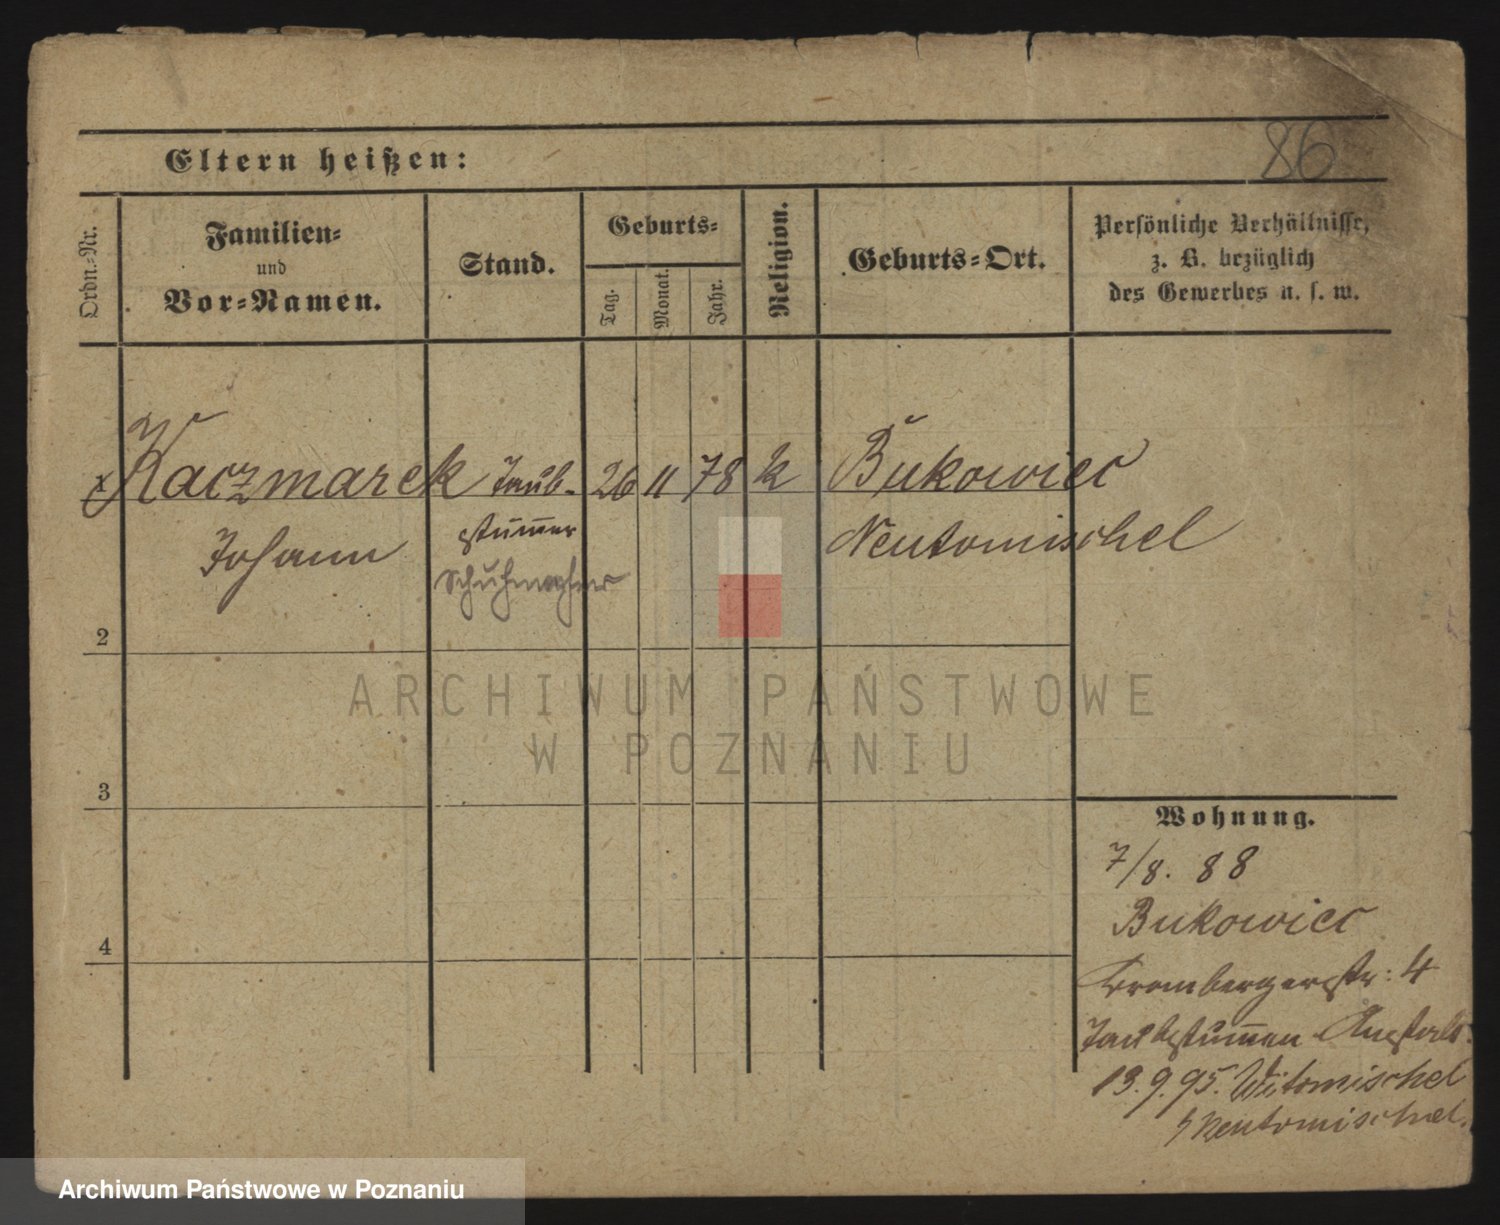 86
Eltern heißen:
Ordn.-Nr.
Familien-
und
Vor-Namen.
Stand.
Geburts-
Tag.
Monat.
Jahr.
Religion.
Geburts-Ort.
Persönliche Verhältnisse,
z. B. bezüglich
des Gewerbes u. s. w.
Kaczmarek Taub- 26 11 78 k Bukowiec
Johann stummer Neutomischel
Schuhmacher
2
3
4
Wohnung.
7/8. 88
Bukowiec
Brombergerstr: 4
Taubstummen Anstalt.
13. 9. 95. Witomischel
Neutomischel.
ARCHIWUM PAŃSTWOWE
W POZNANIU
Archiwum Państwowe w Poznaniu